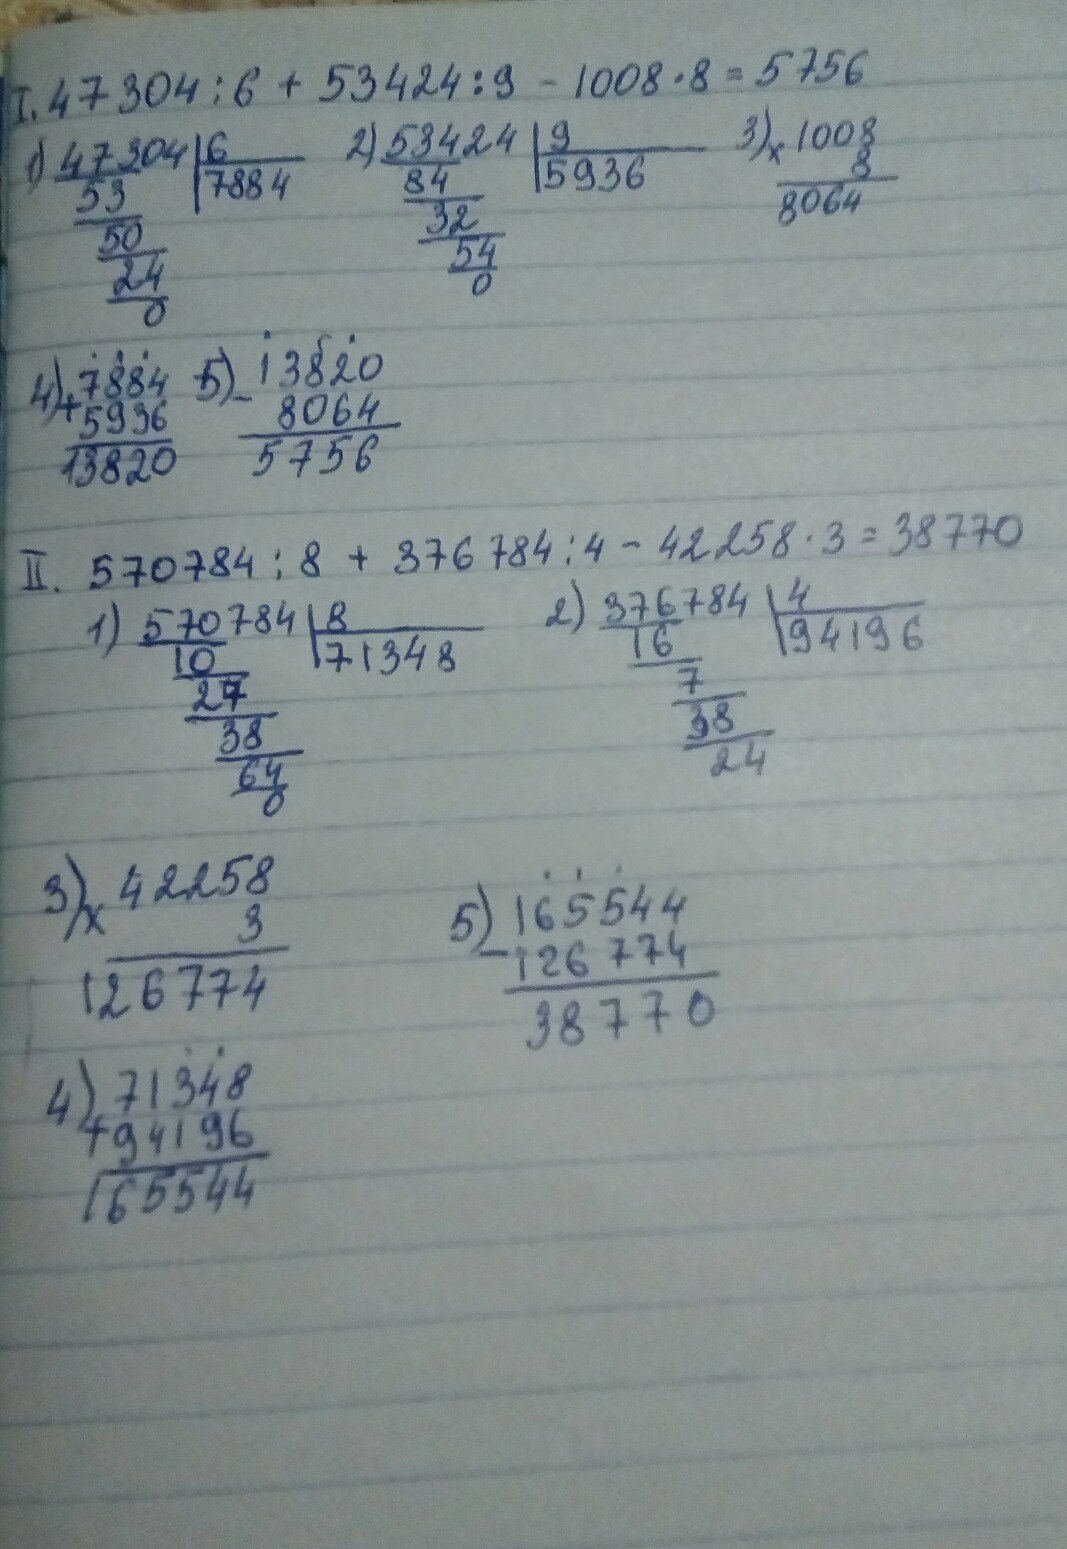 I. 47304 : 6 + 53424 : 9 - 1008 · 8 = 5756
1) 47304 6 2) 53424 9 3) x 1008
53 7884 84 5936 8
50 32 8064
24 54
0 0
4) + 7884 5) - 13820
5936 8064
13820 5756
II. 570784 : 8 + 376784 : 4 - 42258 · 3 = 38770
1) 570784 8 2) 376784 4
10 71348 16 94196
27 7
38 38
64 24
0
3) x 42258
3
126774
5) - 165544
126774
38770
4) + 71348
94196
165544